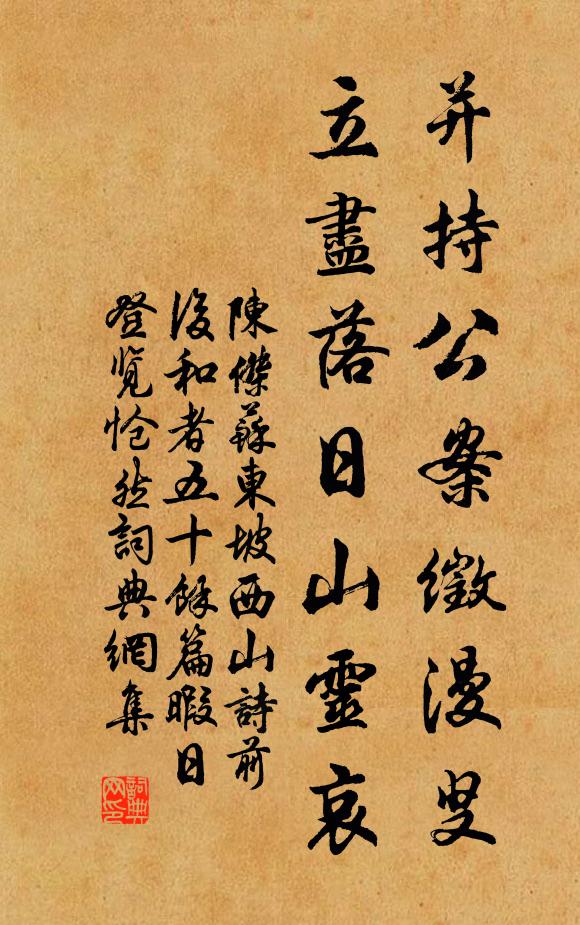 并持公案徵漫叟
立盡落日山靈哀
陳傑蘇東坡西山詩前
後和者五十餘篇暇日
登覽愴然詞典網集
詞典网印